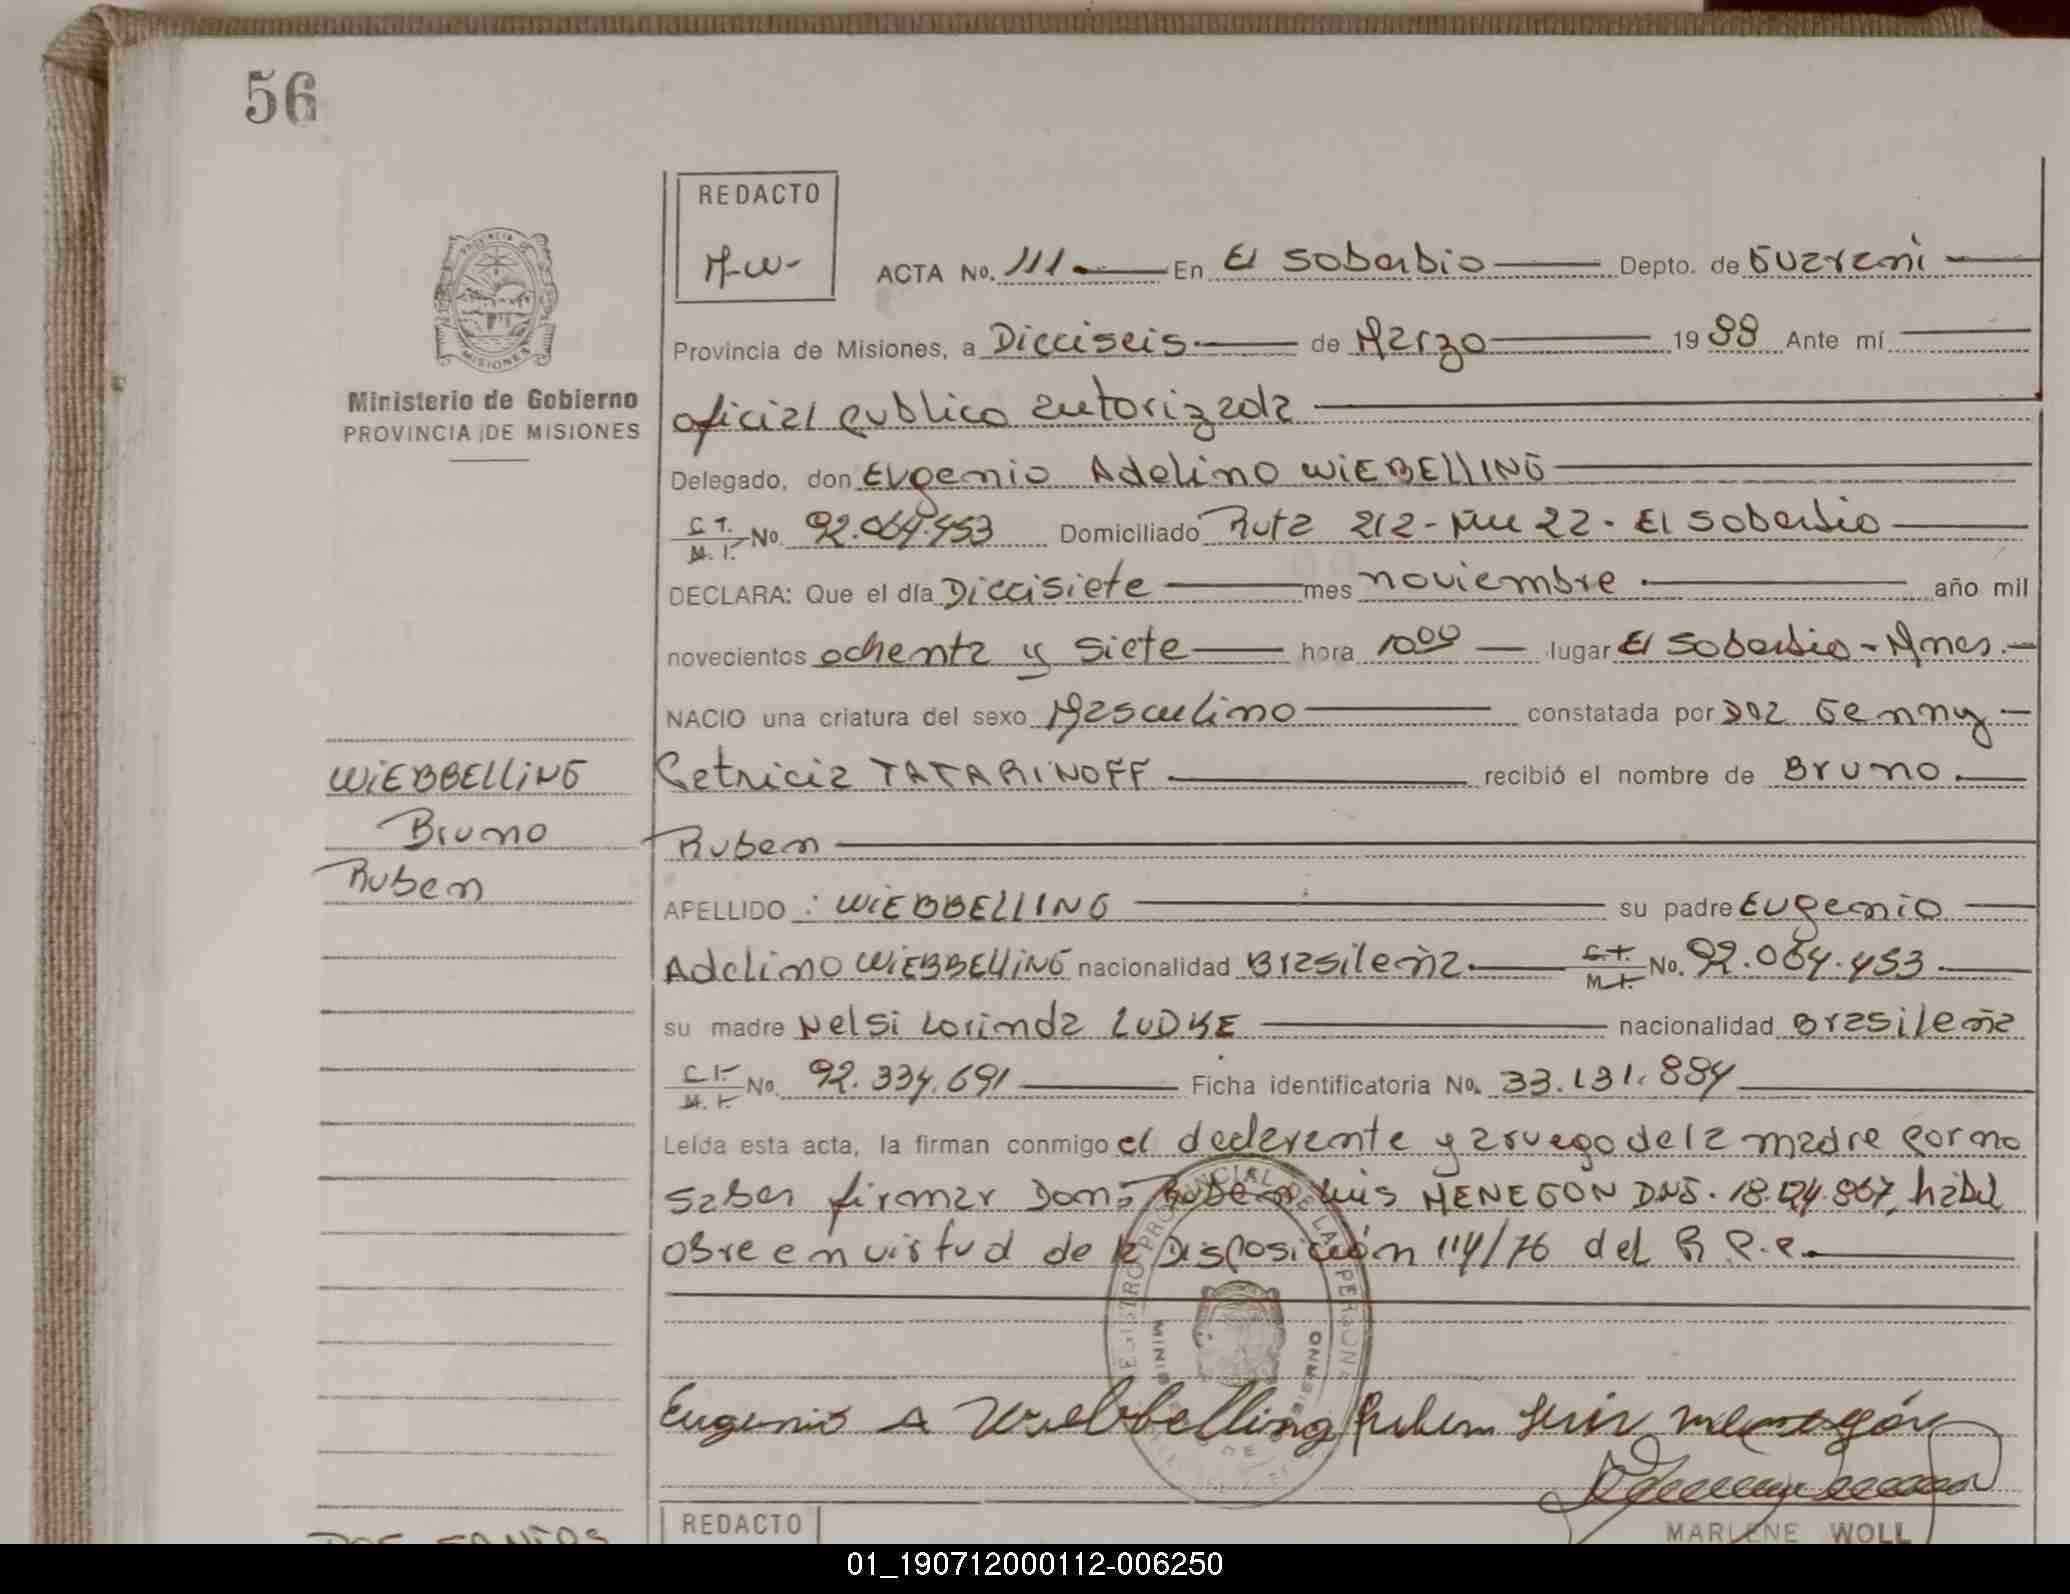 56
REDACTO
M-W-
PROVINCIA DE
MISIONES
ACTA No. 111.— En El Soberbio — Depto. de Guarani —
Provincia de Misiones, a Dieciseis — de Marzo — 1988 Ante mí —
Ministerio de Gobierno
PROVINCIA DE MISIONES
oficial publico autorizada —
Delegado, don Eugenio Adelino WIEBELLING —
C.I. M.I. No. 92.064.453 Domiciliado Ruta 212 - Km 22 - El Soberbio —
DECLARA: Que el día Diecisiete — mes noviembre — año mil
novecientos ochenta y siete — hora 10 00 — lugar El Soberbio - Mnes. —
NACIO una criatura del sexo Masculino — constatada por Dra Genny —
WIEBBELLING
Patricia TATARINOFF — recibió el nombre de Bruno —
Bruno
Ruben —
Ruben
APELLIDO : WIEBBELLING — su padre Eugenio —
Adelino WIEBBELLING nacionalidad Brasileña — C.I. M.I. No. 92.064.453 —
su madre Nelsi Lorinda LUDKE — nacionalidad Brasileña
C.I. M.I. No. 92.334.691 — Ficha identificatoria No. 33.131.884 —
Leída esta acta, la firman conmigo el declarante y a ruego de la madre por no
saber firmar Don: Ruben Luis MENEGON D.N.I. 18. .867, habil
obre en virtud de la Disposición 114/76 del R.P.P. —
REGISTRO PROVINCIAL DE LAS PERSONAS
MINIS DE GOBIERNO
Eugenio A Wiebbelling Ruben Luis Menegón
REDACTO
MARLENE WOLL
DOS SANTOS
01_190712000112-006250